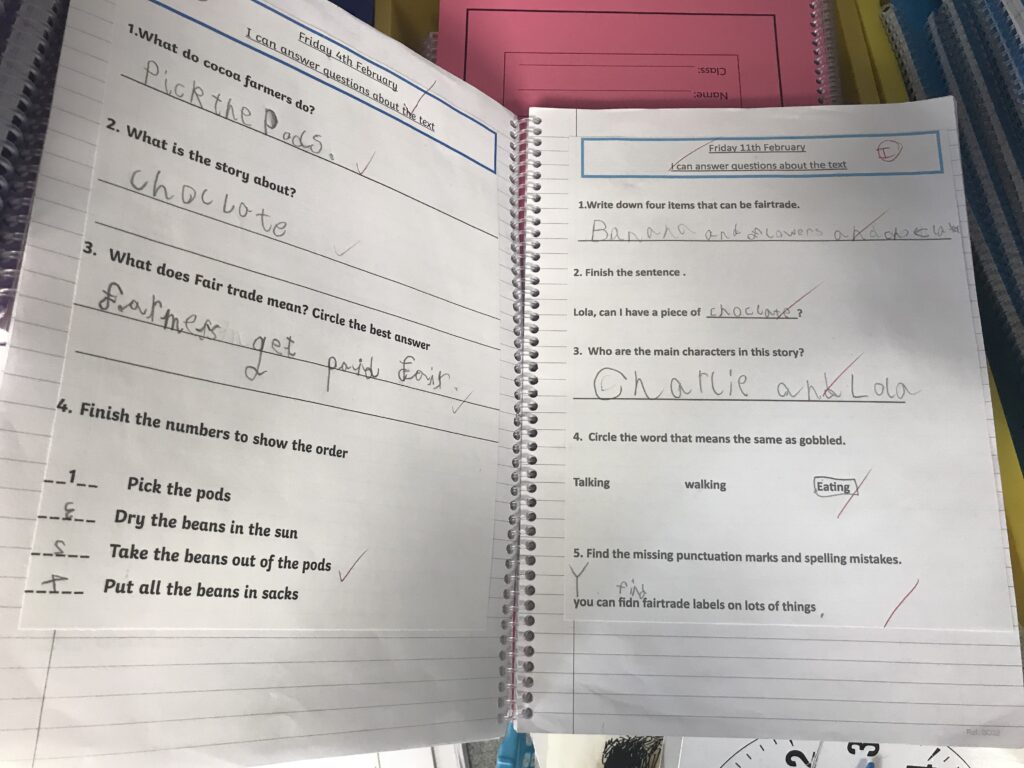 Friday 4th February
I can answer questions about the text
1.What do cocoa farmers do?
Pick the Pods.
2. What is the story about?
choclote
3. What does Fair trade mean? Circle the best answer
farmers get paid fair.
4. Finish the numbers to show the order
1 Pick the pods
3 Dry the beans in the sun
2 Take the beans out of the pods
4 Put all the beans in sacks
Class:
Name:
Friday 11th February
I
I can answer questions about the text
1.Write down four items that can be fairtrade.
Banana and flowers and
2. Finish the sentence .
Lola, can I have a piece of choclate ?
3. Who are the main characters in this story?
Charlie and Lola
4. Circle the word that means the same as gobbled.
Talking walking Eating
5. Find the missing punctuation marks and spelling mistakes.
Y find
you can fidn fairtrade labels on lots of things .
2
3